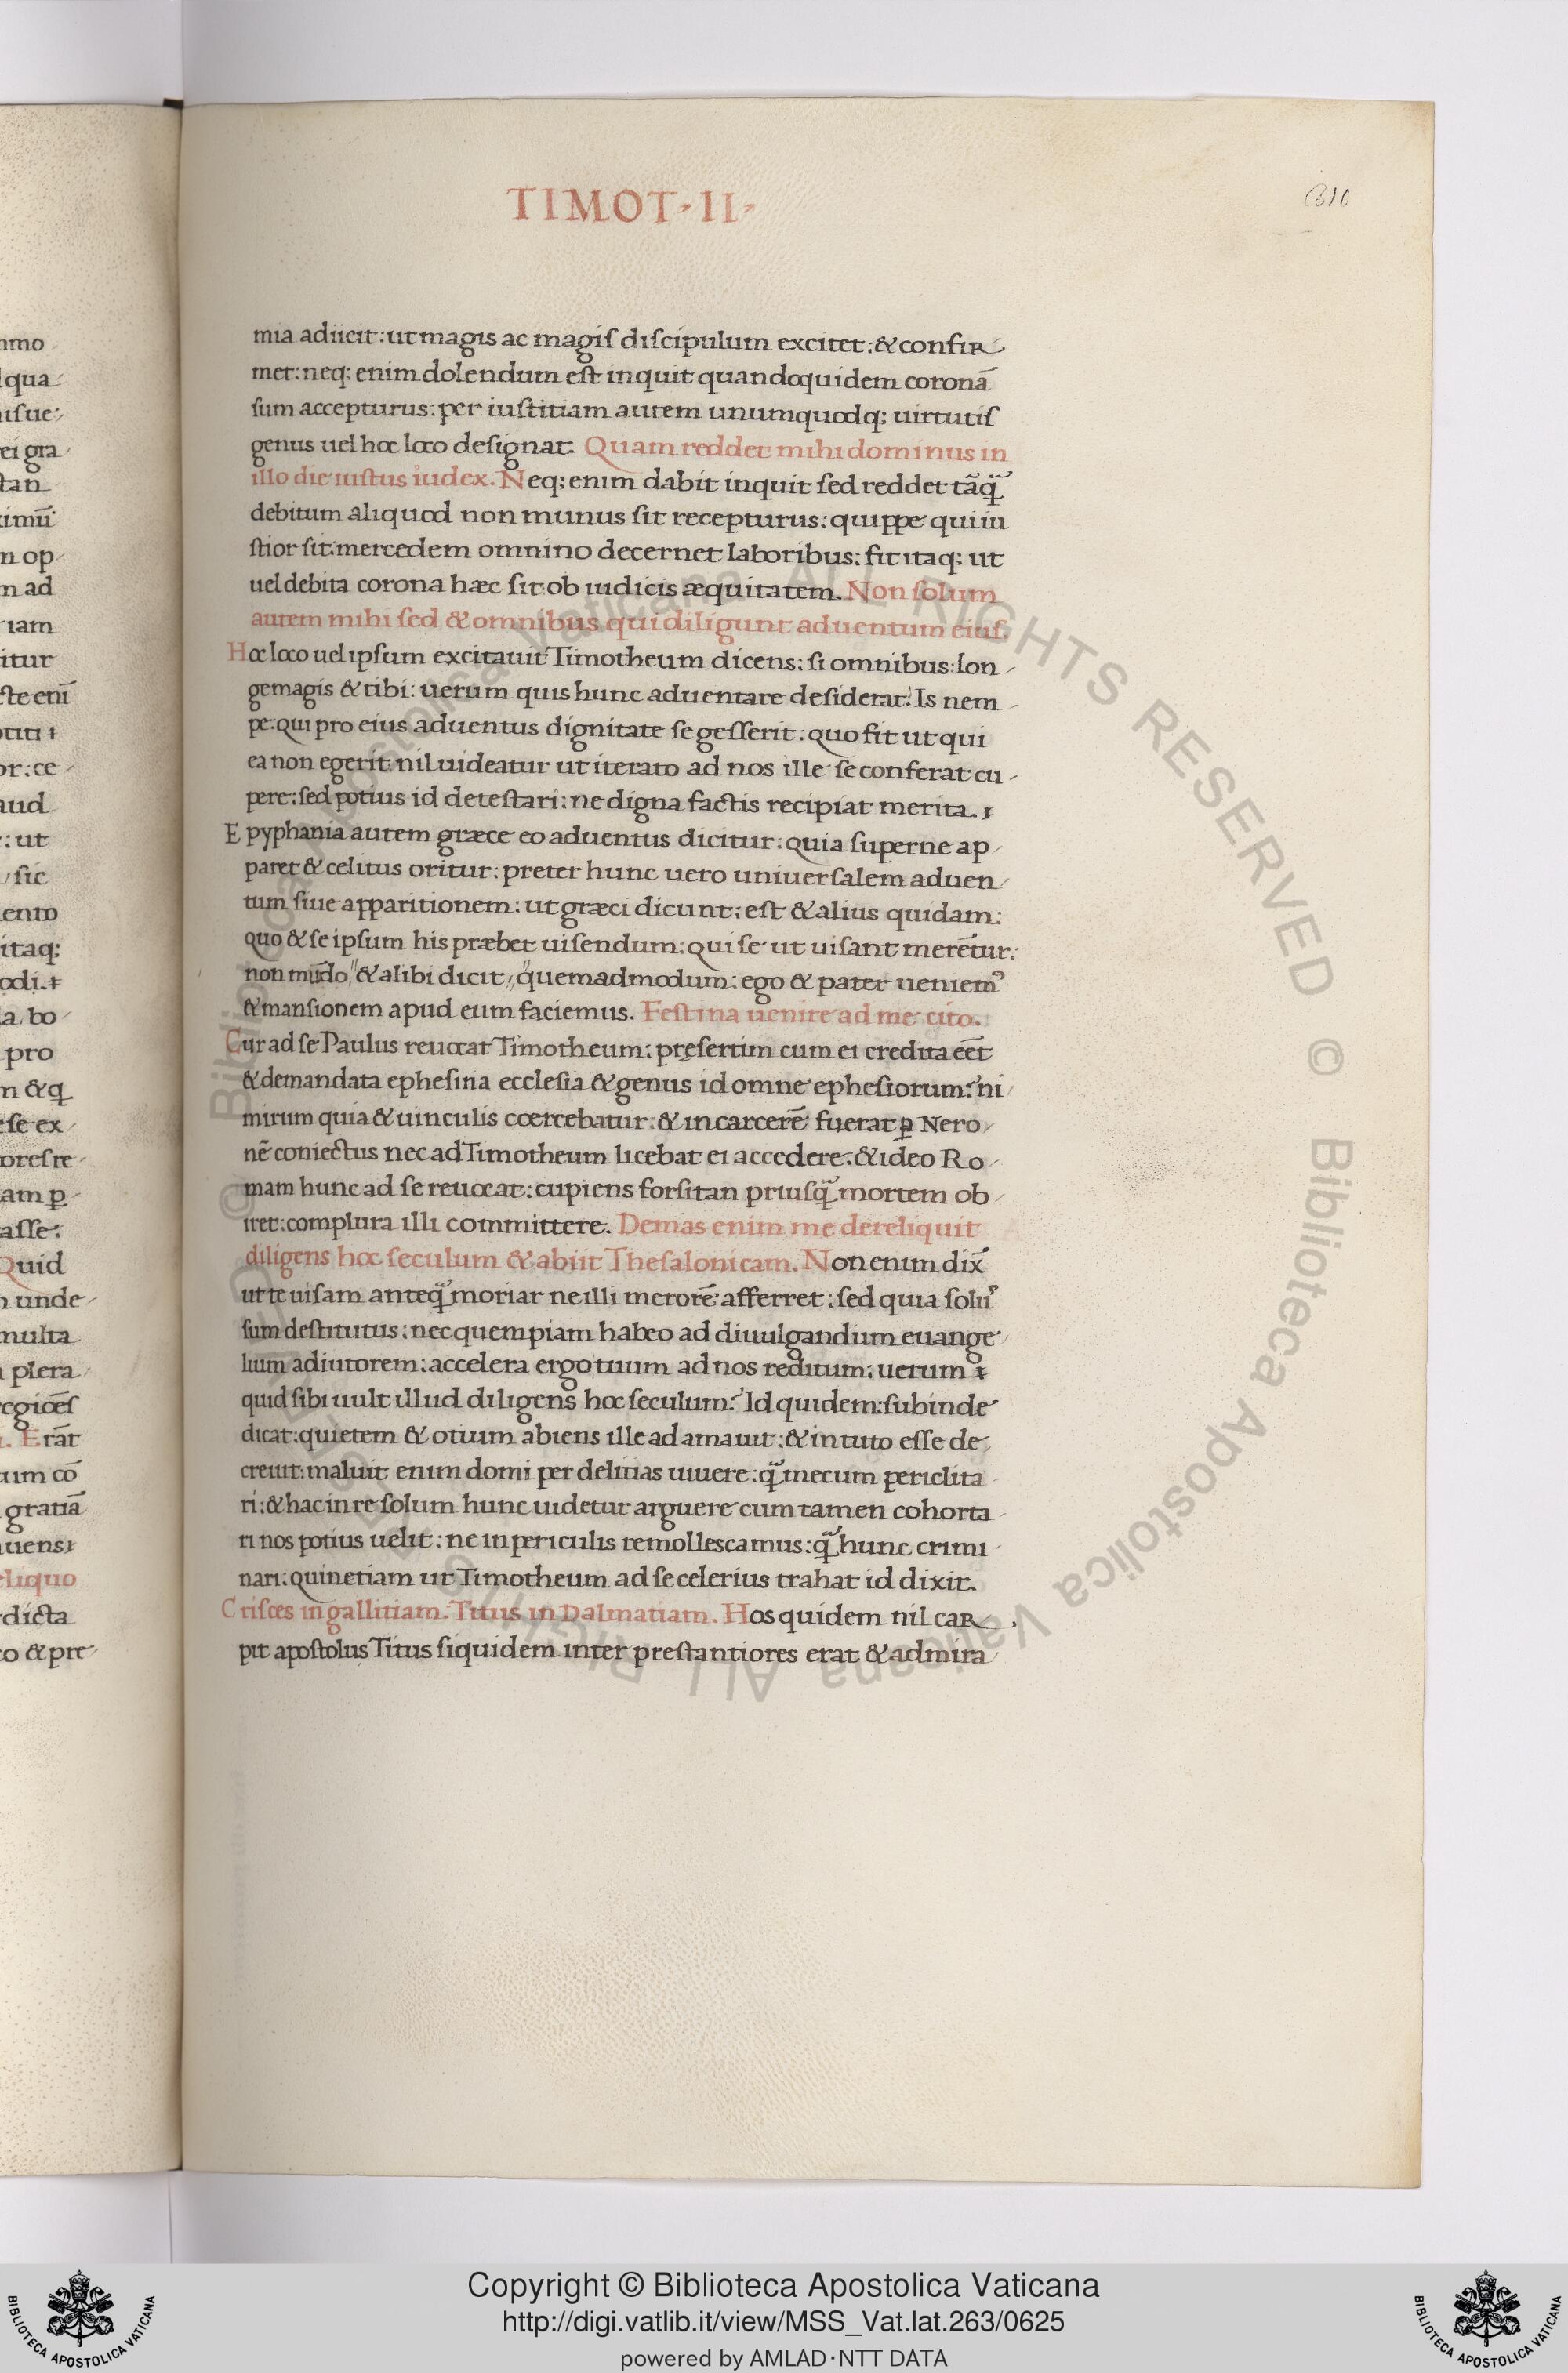 TIMOT·II·
310
mia adiicit: ut magis ac magiſ diſcipulum excitet: & confir
met: neq; enim dolendum eſt inquit quandoquidem coronā
ſum accepturus: per iuſtitiam autem unumquodq; uirtutiſ
genus uel hoc loco deſignat. Quam reddet mihi dominus in
illo die iuſtus iudex. Neq; enim dabit inquit ſed reddet tāq̃
debitum aliquod non munus ſit recepturus: quippe qui iu
ſtior ſit: mercedem omnino decernet laboribus: fit itaq; ut
uel debita corona hæc ſit ob iudicis æquitatem. Non ſolum
autem mihi ſed & omnibus qui diligunt aduentum eiuſ.
Hoc loco uel ipſum excitauit Timotheum dicens: ſi omnibus: lon
gemagis & tibi: uerum quis hunc aduentare deſiderat? Is nem
pe: qui pro eius aduentus dignitate ſe geſſerit: quo fit ut qui
ea non egerit nil uideatur ut iterato ad nos ille ſe conferat cu
pere: ſed potius id deteſtari: ne digna factis recipiat merita.
Epyphania autem græce eo aduentus dicitur: quia ſuperne ap
paret & celitus oritur: preter hunc uero uniuerſalem aduen
tum ſiue apparitionem: ut græci dicunt: eſt & alius quidam:
quo & ſe ipſum his præbet uiſendum: qui ſe ut uiſant merētur:
non mūdo & alibi dicit, quemadmodum: ego & pater ueniem᾽
& manſionem apud eum faciemus. Feſtina uenire ad me cito.
Cur ad ſe Paulus reuocat Timotheum: pręſertim cum ei credita eēt
& demandata epheſina eccleſia & genus id omne epheſiorum? ni
mirum quia & uinculis coercebatur: & in carcerē fuerat ꝑ Nero
nē coniectus nec ad Timotheum licebat ei accedere: & ideo Ro
mam hunc ad ſe reuocat: cupiens forſitan priuſq̃ mortem ob
iret: complura illi committere. Demas enim me dereliquit
diligens hoc ſeculum & abiit Theſalonicam. Non enim dix̄
ut te uiſam anteq̃ moriar ne illi merorē afferret: ſed quia ſolū
ſum deſtitutus: nec quempiam habeo ad diuulgandum euange
lium adiutorem: accelera ergo tuum ad nos reditum: uerum
quid ſibi uult illud diligens hoc ſeculum? Id quidem: ſubinde
dicat: quietem & otium abiens ille ad amauit: & in tuto eſſe de
creuit: maluit enim domi per delitias uiuere: q̃ mecum periclita
ri: & hac in re ſolum hunc uidetur arguere cum tamen cohorta
ri nos potius uelit: ne in periculis remolleſcamus: q̃ hunc crimi
nari: quinetiam ut Timotheum ad ſe celerius trahat id dixit.
Criſces in gallitiam. Titus in Dalmatiam. Hos quidem nil car
pit apoſtolus Titus ſiquidem inter preſtantiores erat & admira
© Biblioteca Apostolica Vaticana ALL RIGHTS RESERVED © Biblioteca Apostolica Vaticana ALL RIGHTS RESERVED
Copyright © Biblioteca Apostolica Vaticana
http://digi.vatlib.it/view/MSS_Vat.lat.263/0625
powered by AMLAD·NTT DATA
BIBLIOTECA APOSTOLICA VATICANA
BIBLIOTECA APOSTOLICA VATICANA